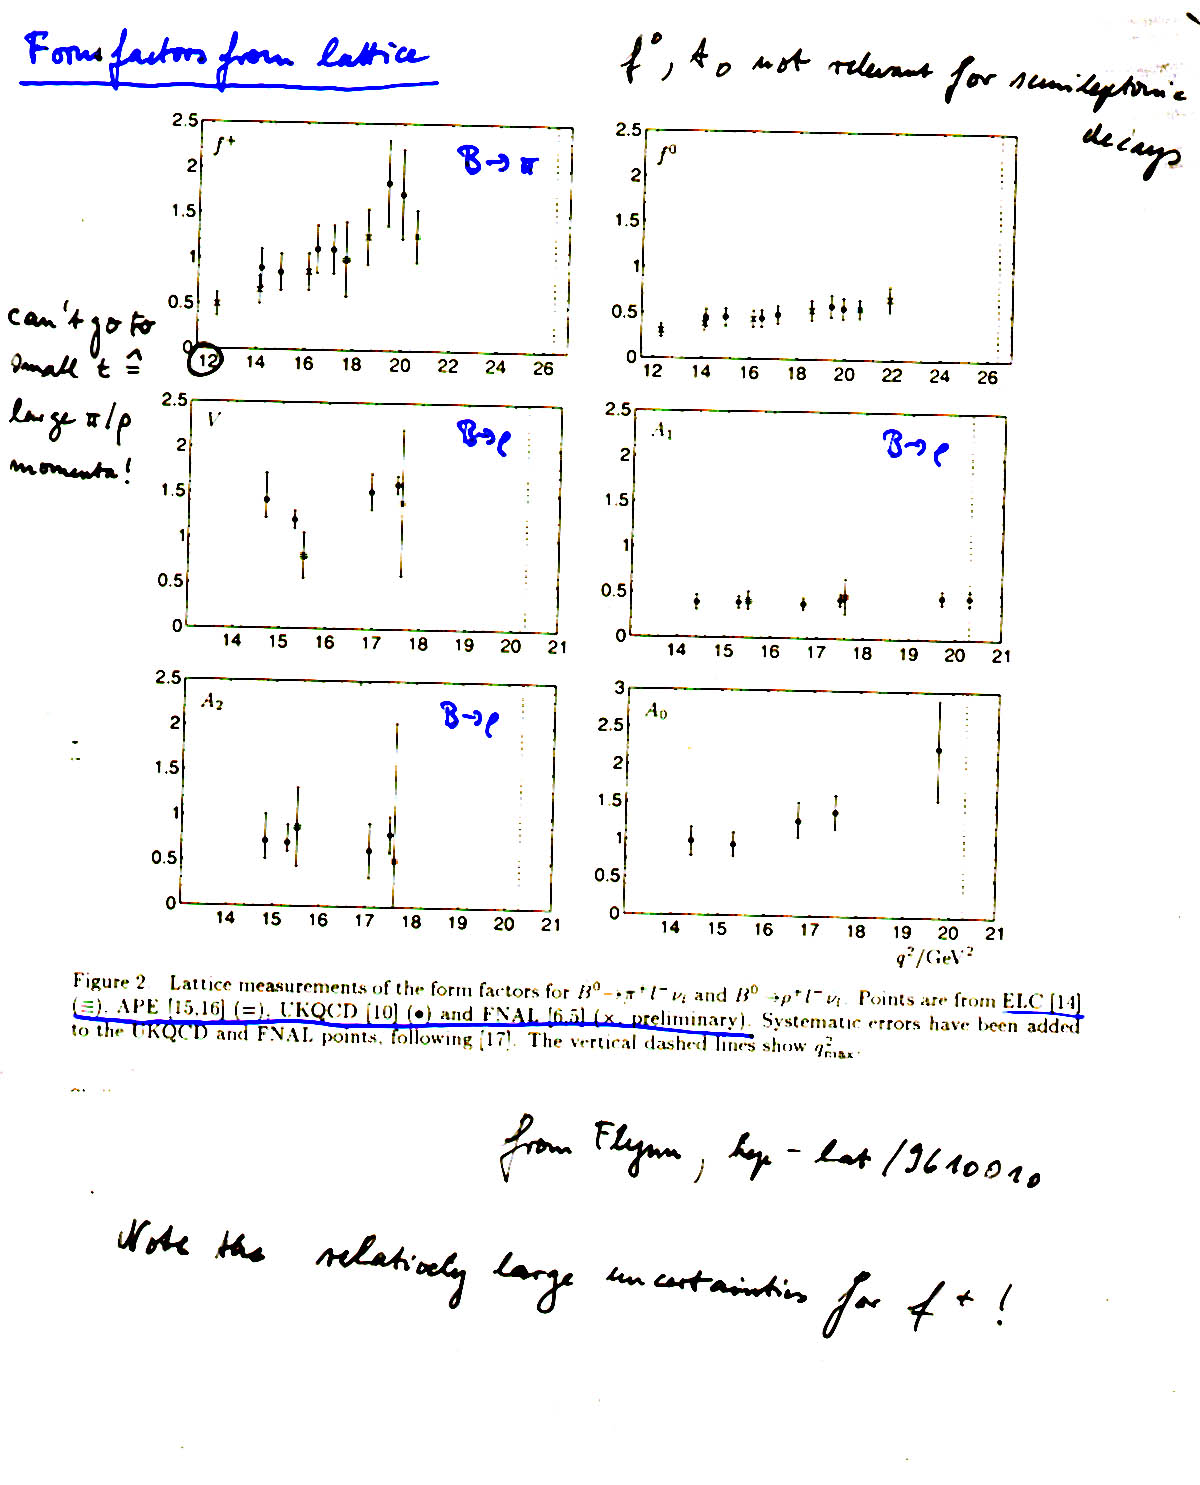 Formfactors from lattice
f⁰, A₀ not relevant for semileptonic
decays
2.5
2
1.5
1
0.5
0
f⁺
B→π
12 14 16 18 20 22 24 26
2.5
2
1.5
1
0.5
0
f⁰
12 14 16 18 20 22 24 26
can't go to
small t ≙
large π/ρ
momenta!
2.5
2
1.5
1
0.5
0
V
B→ρ
14 15 16 17 18 19 20 21
2.5
2
1.5
1
0.5
0
A₁
B→ρ
14 15 16 17 18 19 20 21
2.5
2
1.5
1
0.5
0
A₂
B→ρ
14 15 16 17 18 19 20 21
3
2.5
2
1.5
1
0.5
0
A₀
14 15 16 17 18 19 20 21
q²/GeV²
Figure 2 Lattice measurements of the form factors for B⁰→π⁺l⁻ν̄ₗ and B⁰→ρ⁺l⁻ν̄ₗ. Points are from ELC [14]
APE [15,16] UKQCD [10] (●) and FNAL [6,5] (×, preliminary). Systematic errors have been added
to the UKQCD and FNAL points, following [17]. The vertical dashed lines show q²max.
from Flynn, hep-lat/9610010
Note the relatively large uncertainties for f⁺!